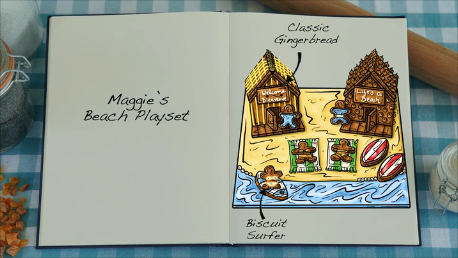 Maggie's
Beach Playset
Classic
Gingerbread
Life's a
Beach
Biscuit
Surfer